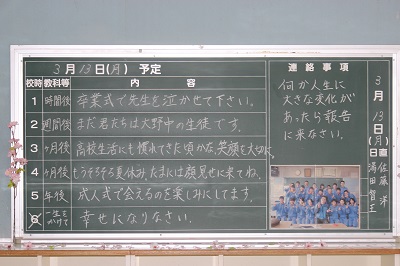 3月13日(月) 予定
校時 教科等 内容
1 時間後 卒業式で先生を泣かせて下さい。
2 週間後 まだ君たちは大野中の生徒です。
3 ヶ月後 高校生活にも慣れてきた頃かな。笑顔を大切に。
4 ヶ月後 もうそろそろ夏休み。たまには顔見せに来てね。
5 年後 成人式で会えるのを楽しみにしてます。
6 一生をかけて 幸せになりなさい。
連絡事項
何か人生に
大きな変化が
あったら報告
に来なさい。
3月13日(月)
日直
佐藤 洋
濱田 智王